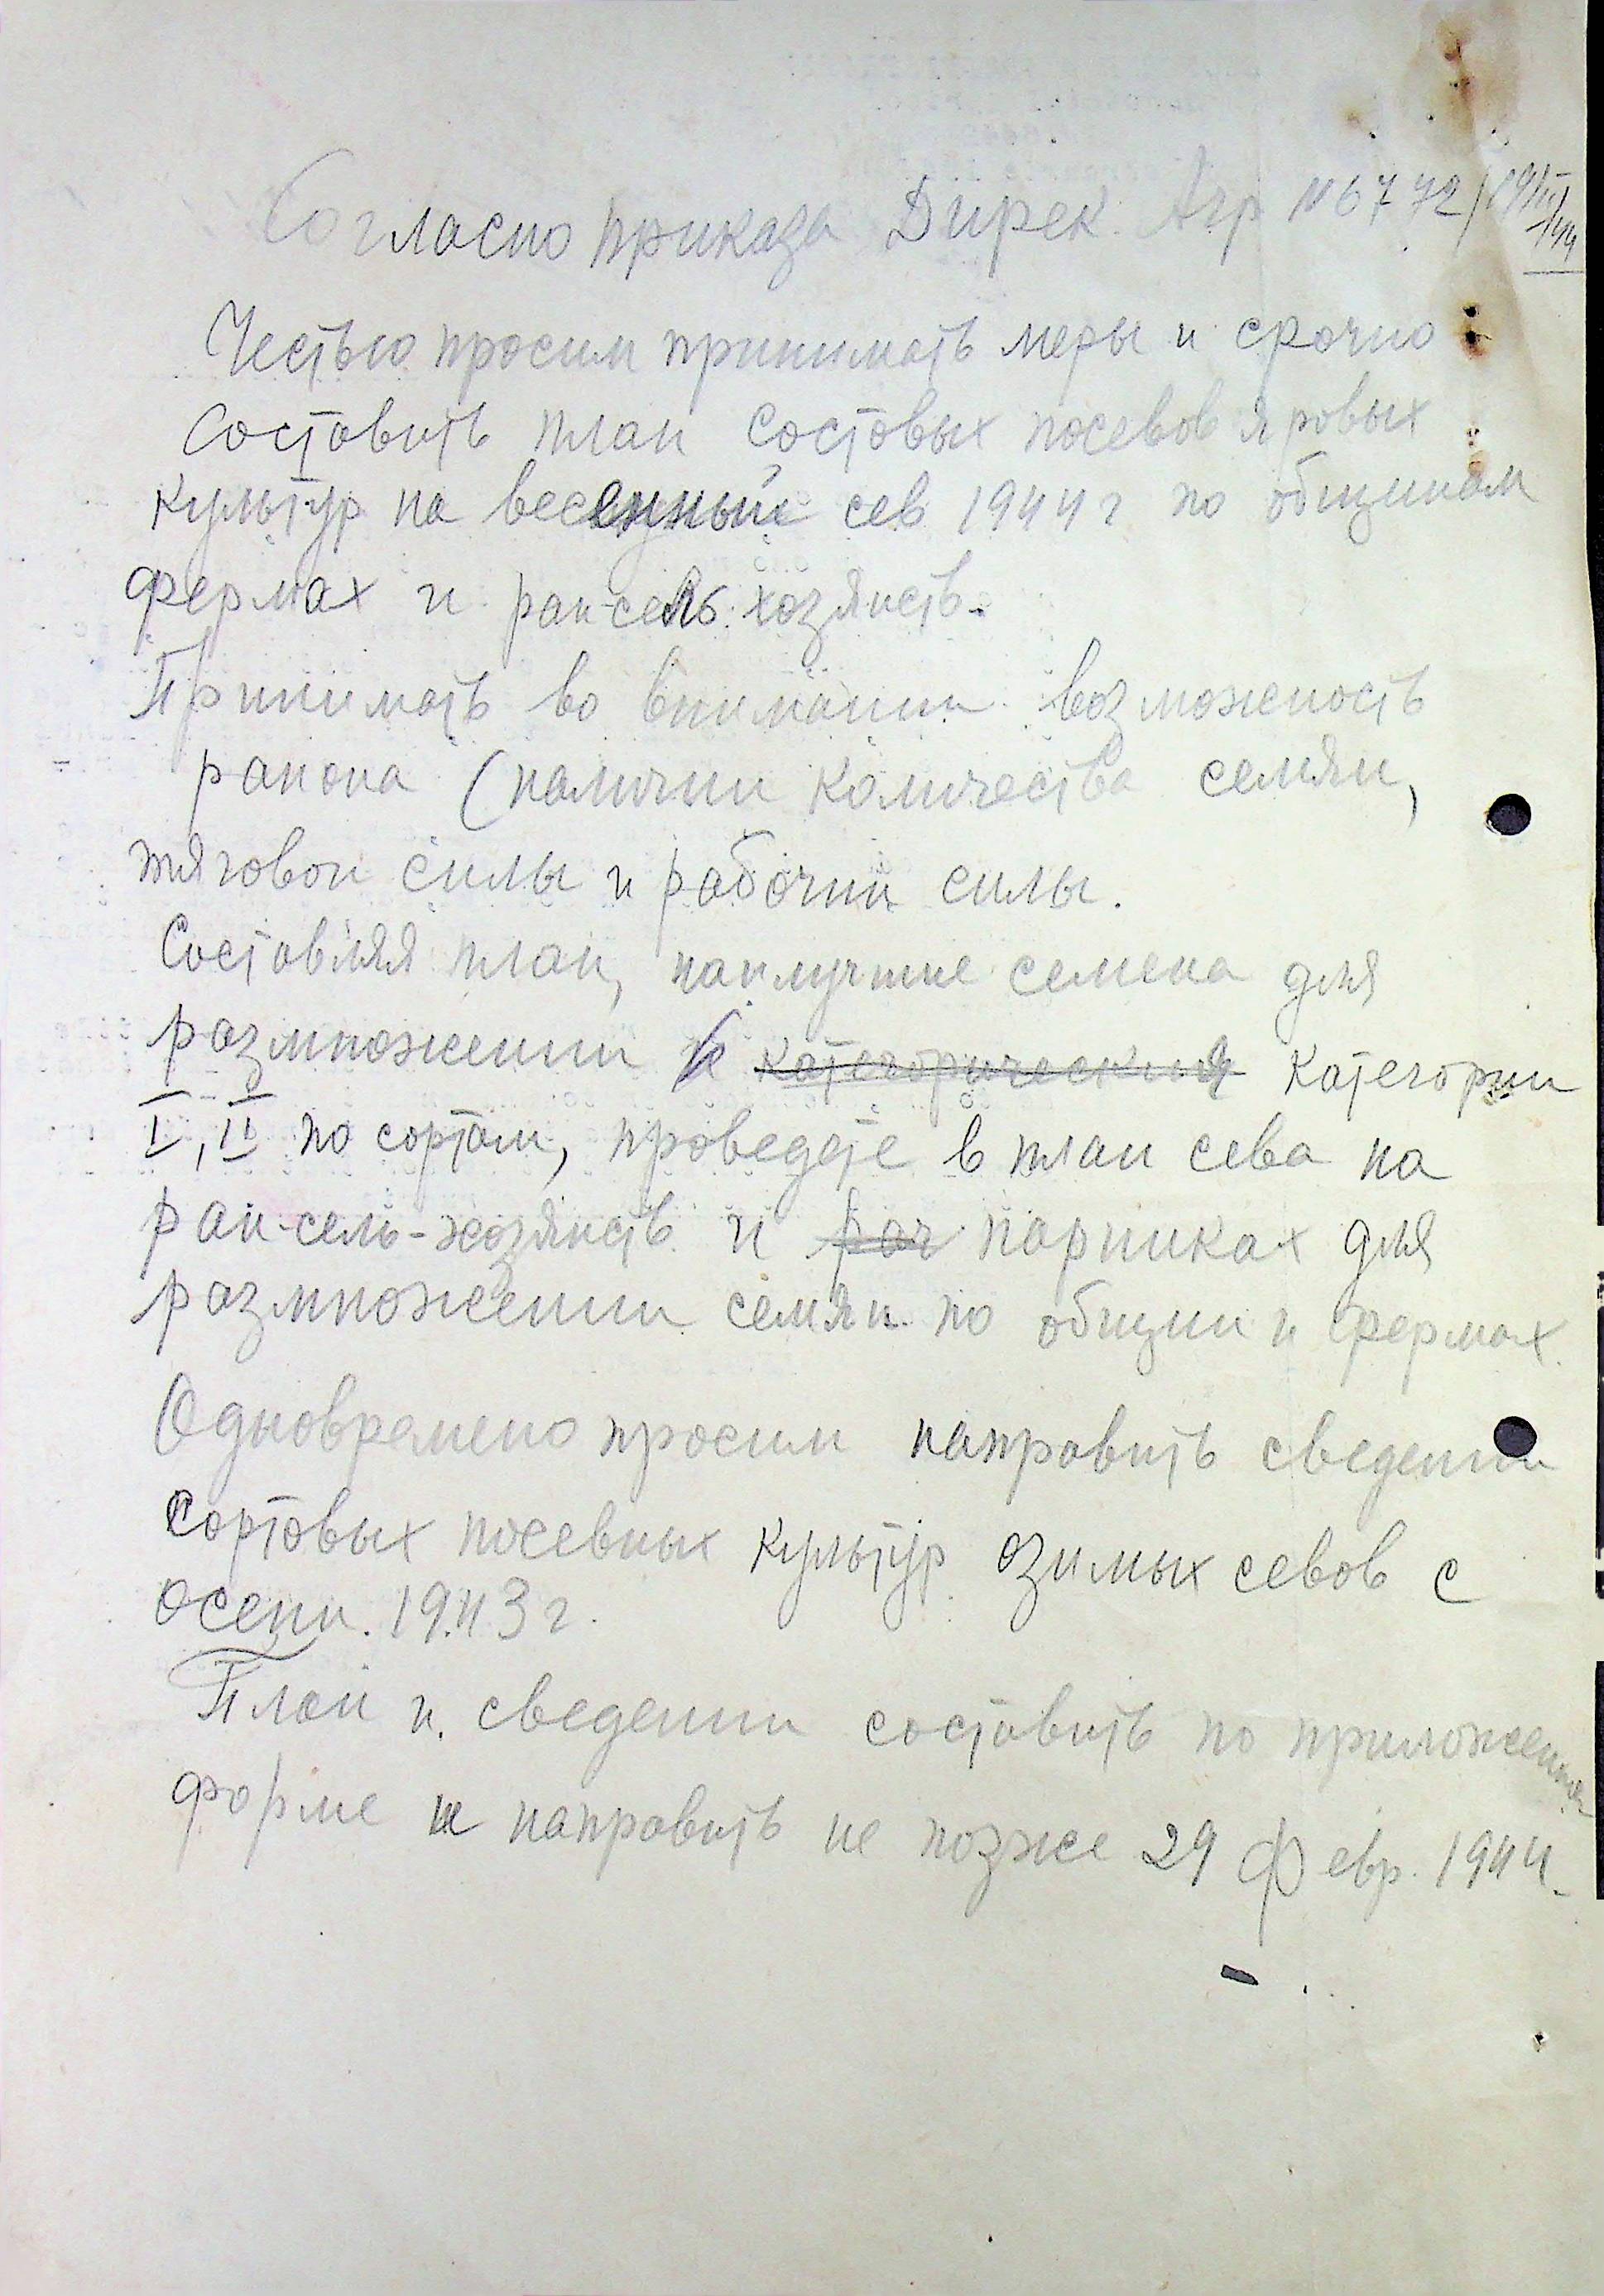 Согласно приказа Дирек. Агр № 6772/19/II/44
Честью просим принимать меры и срочно
Составить план состовых посевов яровых
культур на весенный сев 1944 г по общинам
фермах и раи-сель. хозяиств.
Принимать во внимании возможность
раиона (наличии количества семян,
тяговои силы и рабочии силы.
Составляя план, наилучшие семена для
размножении к категорическия категории
I, II по сортам, проведете в план сева на
раи-сель-хозяиств и рас парниках для
размножении семян по общин и фермах.
Одновремено просим направить сведении
Сортовых посевных культур озимых севов с
осени. 1943 г.
План и. сведении составить по приложенная
форме и направить не позже 29 Февр. 1944.